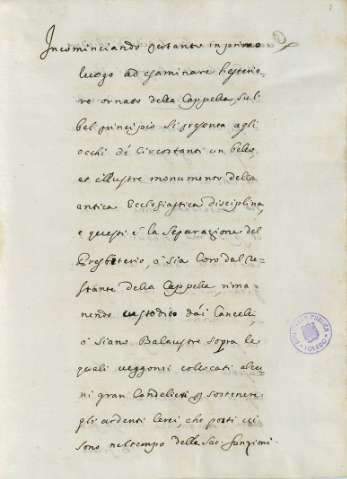 Incominciando pertanto in primo
luogo ad esaminare l'esterio-
re ornato della Cappella, sul
bel principio si presenta agli
occhi de' Circostanti un bello,
et illustre monumento della
antica Ecclesiastica disciplina,
e questi è la separazione del
Presbiterio, o sia Coro dal re-
stante della Cappella rima-
nendo custodito dai Cancelli,
o siano Balaustre sopra le
quali veggonsi collocati alcu-
ni gran Candelieri p sostenere
gli ardenti Cerei, che posti vi
sono nel tempo delle Sac. funzioni.
TOLEDO